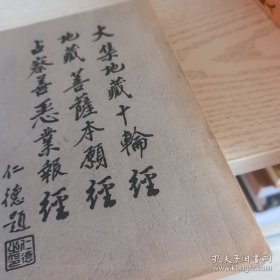 大集地藏十輪經
地藏菩薩本願經
占察善惡業報經
仁德題
仁德
孔夫子旧书网